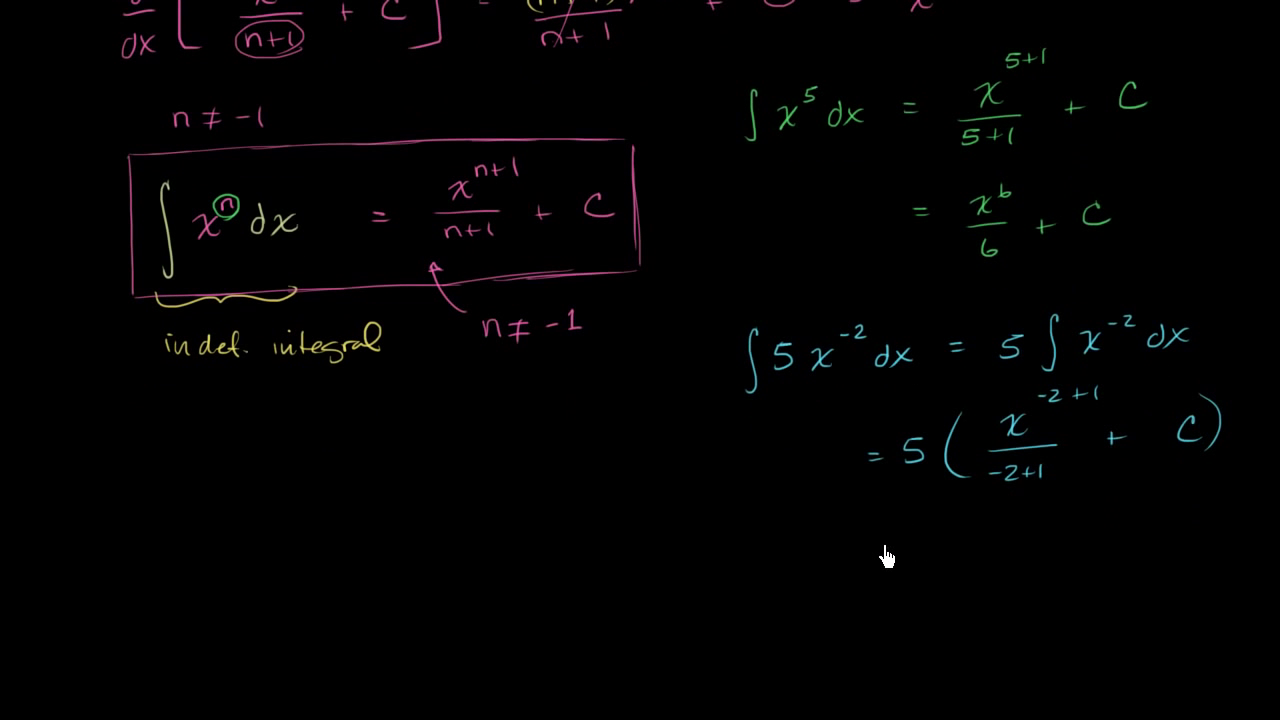 dx [ (n+1) + C ] = n+1 +
n ≠ -1
∫ xⁿ dx = xⁿ⁺¹/n+1 + C
n ≠ -1
indef. integral
∫ x⁵ dx = x⁵⁺¹/5+1 + C
= x⁶/6 + C
∫ 5 x⁻² dx = 5 ∫ x⁻² dx
= 5 ( x⁻²⁺¹/-2+1 + C )